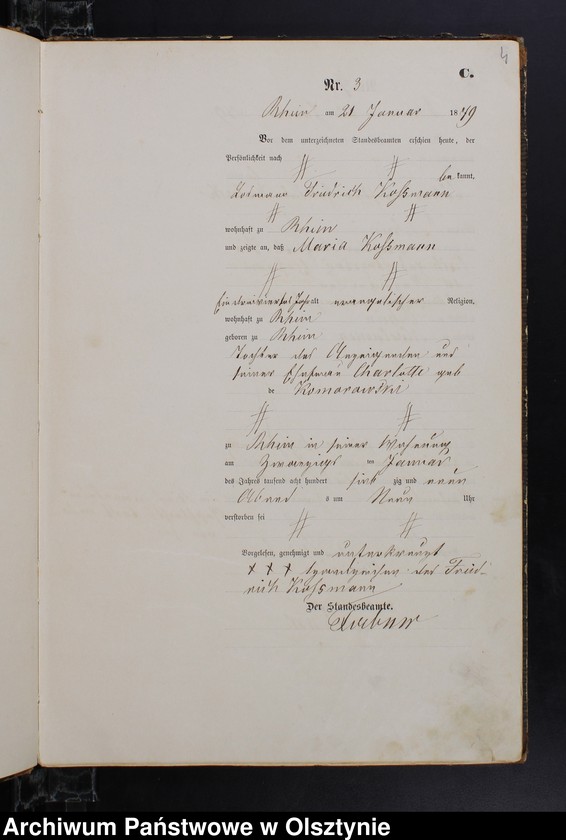 4
C.
Nr. 3
Rhein am 21 Januar 1879
Vor dem unterzeichneten Standesbeamten erschien heute, der
Persönlichkeit nach
be kannt,
Losmann Friedrich Kossmann
wohnhaft zu Rhein
und zeigte an, daß Maria Kossmann
Ein dreiviertel Jahr alt evangelischer Religion,
wohnhaft zu Rhein
geboren zu Rhein
Tochter des Anzeigenden und
seiner Ehefrau Charlotte geb
de Komorowski
zu Rhein in seiner Wohnung
am Zwanzigst ten Januar
des Jahres tausend acht hundert sieb zig und neun
Abend s um Neun Uhr
verstorben sei
Vorgelesen, genehmigt und unterkreuzt
+ + + Handzeichen des Fried-
rich Kossmann
Der Standesbeamte.
Archiwum Państwowe w Olsztynie